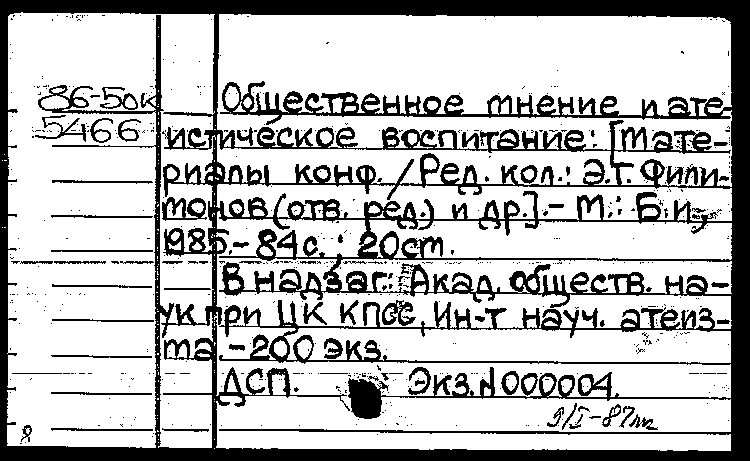 86-5ок
5466
Общественное мнение и ате-
истическое воспитание: [Мате-
риалы конф. / Ред. кол.: Э.Г. Фили-
монов (отв. ред.) и др.]. - М.: Б.и.,
1985. - 84 с. ; 20 см.
В надзаг.: Акад. обществ. на-
ук при ЦК КПСС, Ин-т науч. атеиз-
ма. - 200 экз.
ДСП. Экз. N 000004.
9/I-87
8